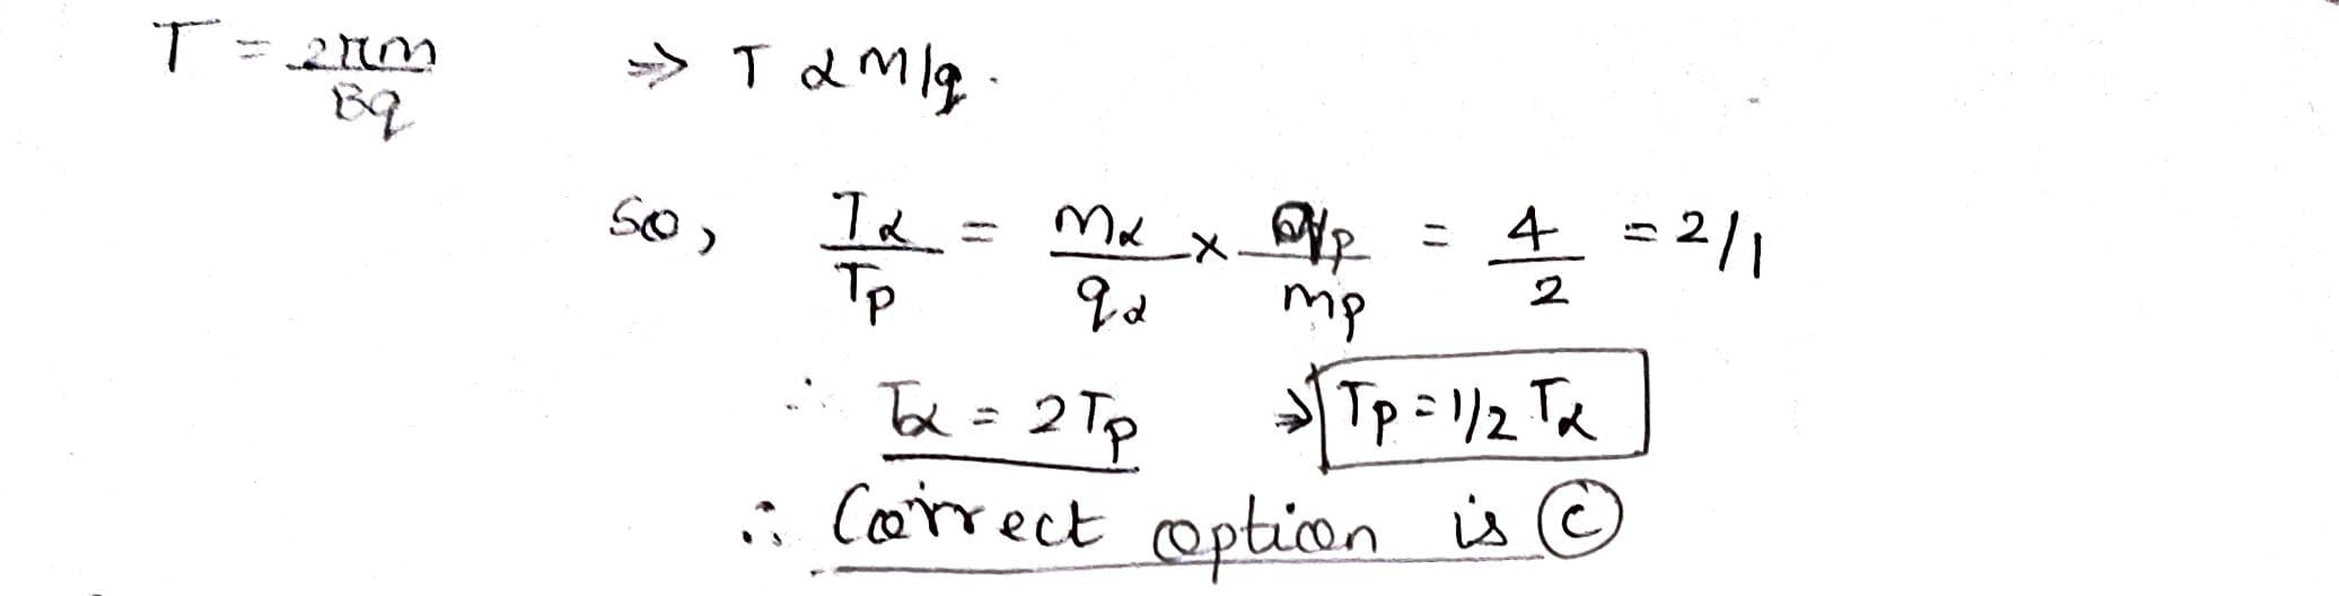 T = 2πm/Bq ⇒ T α m/q.
so, Tα/Tp = mα/qα × qp/mp = 4/2 = 2/1
∴ Tα = 2Tp ⇒ Tp = 1/2 Tα
∴ Correct option is ⓒ